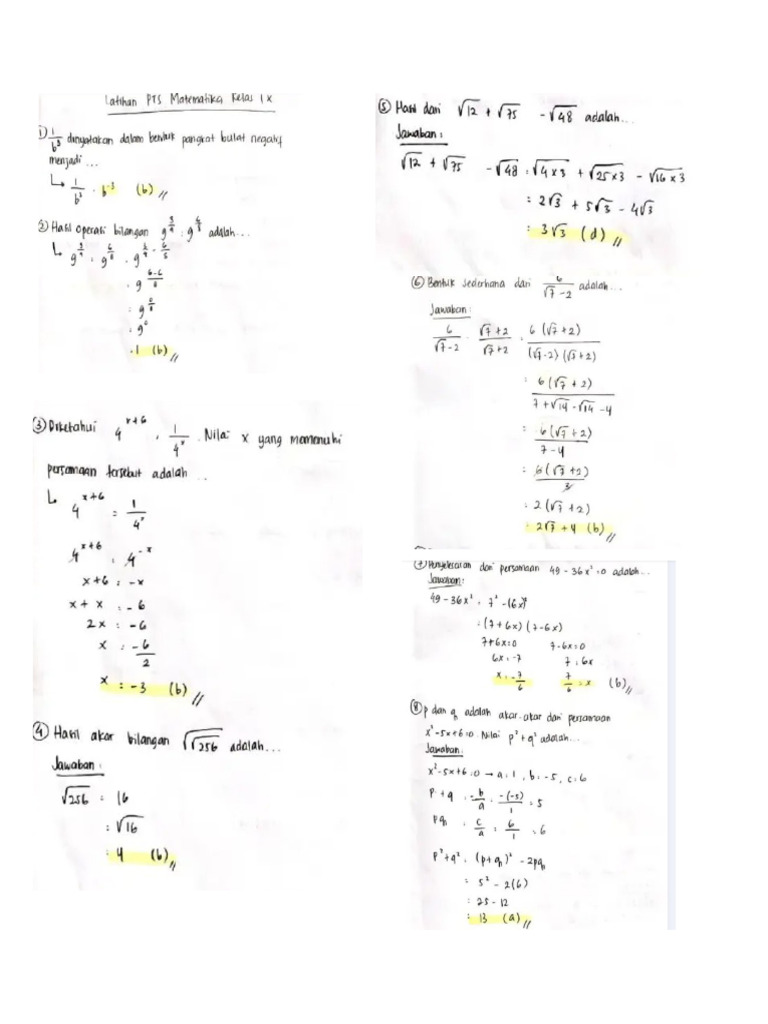 Latihan PTS Matematika Kelas IX
① 1/b³ dinyatakan dalam bentuk pangkat bulat negatif
menjadi ...
↳ 1/b³ = b⁻³ (b) //
② Hasil operasi bilangan adalah...
= 9⁰
= 1 (b) //
③ Diketahui 4^(x+6) = 1/4^x . Nilai x yang memenuhi
persamaan tersebut adalah ...
↳ 4^(x+6) = 1/4^x
4^(x+6) = 4^(-x)
x+6 = -x
x + x = -6
2x = -6
x = -6/2
x = -3 (b) //
④ Hasil akar bilangan √√256 adalah...
Jawaban :
√256 = 16
= √16
= 4 (b) //
⑤ Hasil dari √12 + √75 - √48 adalah...
Jawaban :
√12 + √75 - √48 = √4×3 + √25×3 - √16×3
= 2√3 + 5√3 - 4√3
= 3√3 (d) //
⑥ Bentuk sederhana dari 6/(√7-2) adalah...
Jawaban :
6/(√7-2) · (√7+2)/(√7+2) = 6(√7+2)/((√7-2)(√7+2))
= 6(√7+2)/(7+√14-√14-4)
= 6(√7+2)/(7-4)
= 6(√7+2)/3
= 2(√7+2)
= 2√7+4 (b) //
⑦ Penyelesaian dari persamaan 49 - 36x² = 0 adalah...
Jawaban :
49 - 36x² = 7² - (6x)²
= (7+6x)(7-6x)
7+6x=0 7-6x=0
6x = -7 7 = 6x
x = -7/6 7/6 = x (b) //
⑧ p dan q adalah akar-akar dari persamaan
x²-5x+6=0. Nilai p²+q² adalah...
Jawaban :
x²-5x+6=0 → a=1, b=-5, c=6
p+q = -b/a = -(-5)/1 = 5
pq = c/a = 6/1 = 6
p²+q² = (p+q)² - 2pq
= 5² - 2(6)
= 25 - 12
= 13 (a) //